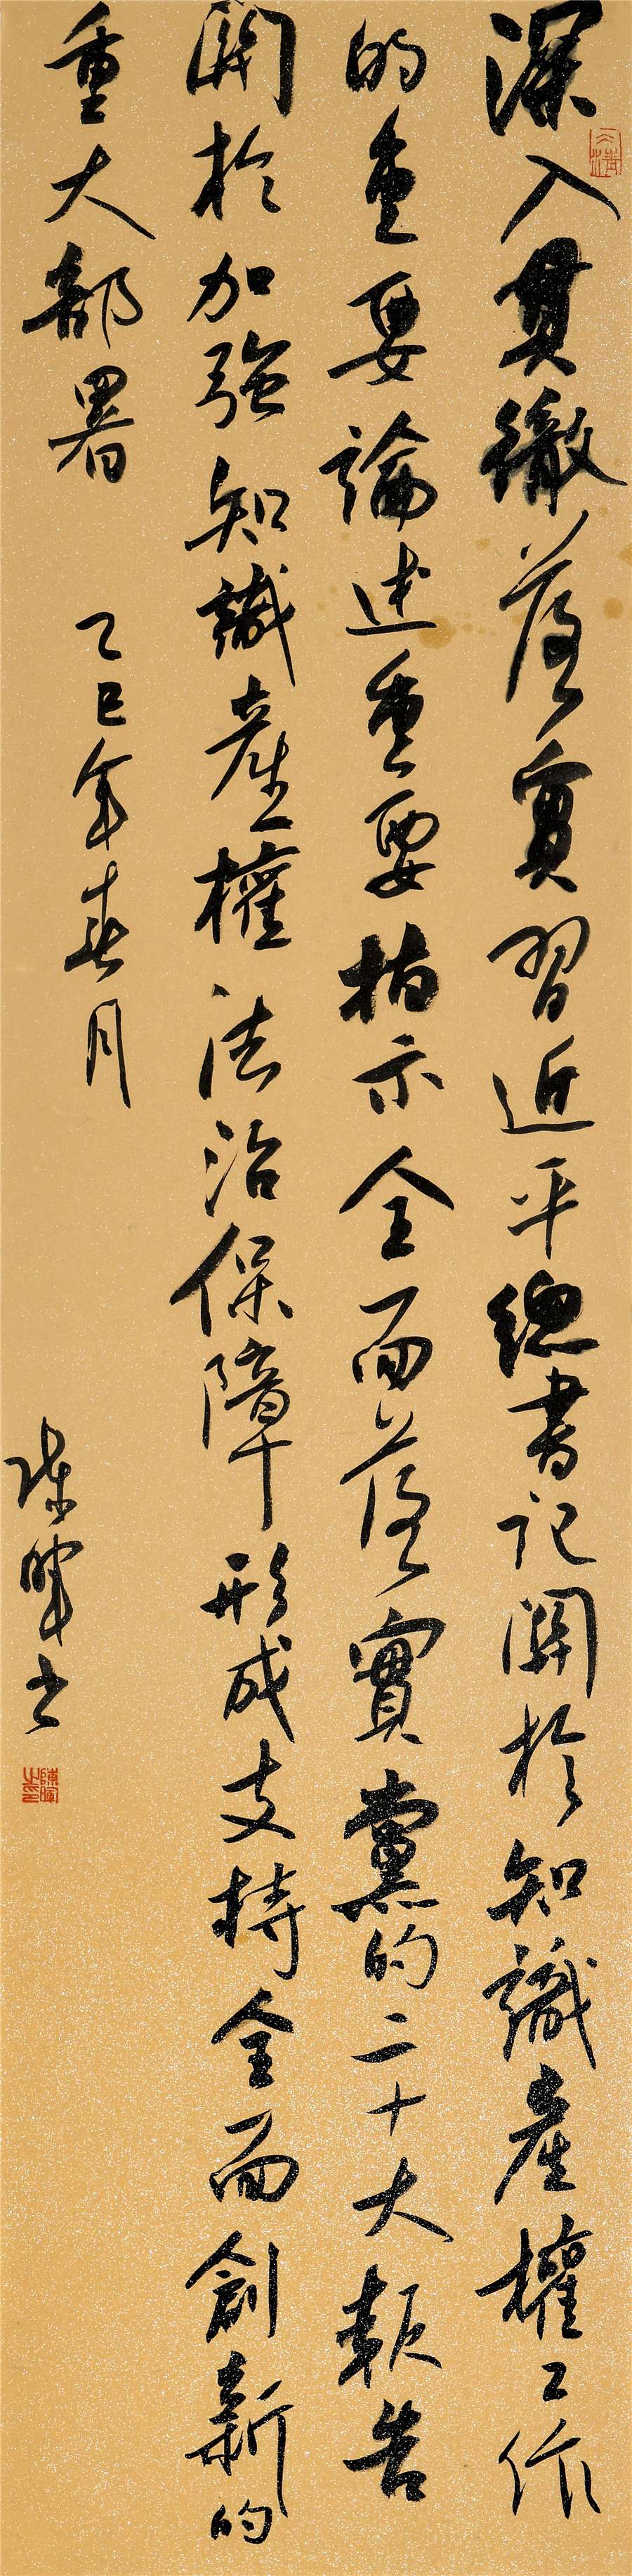 深入貫徹落實習近平總書記關於知識産權工作
的重要論述重要指示全面落實黨的二十大報告
關於加強知識産權法治保障形成支持全面創新的
重大部署
乙巳年春月
陳暉書
陳暉之印